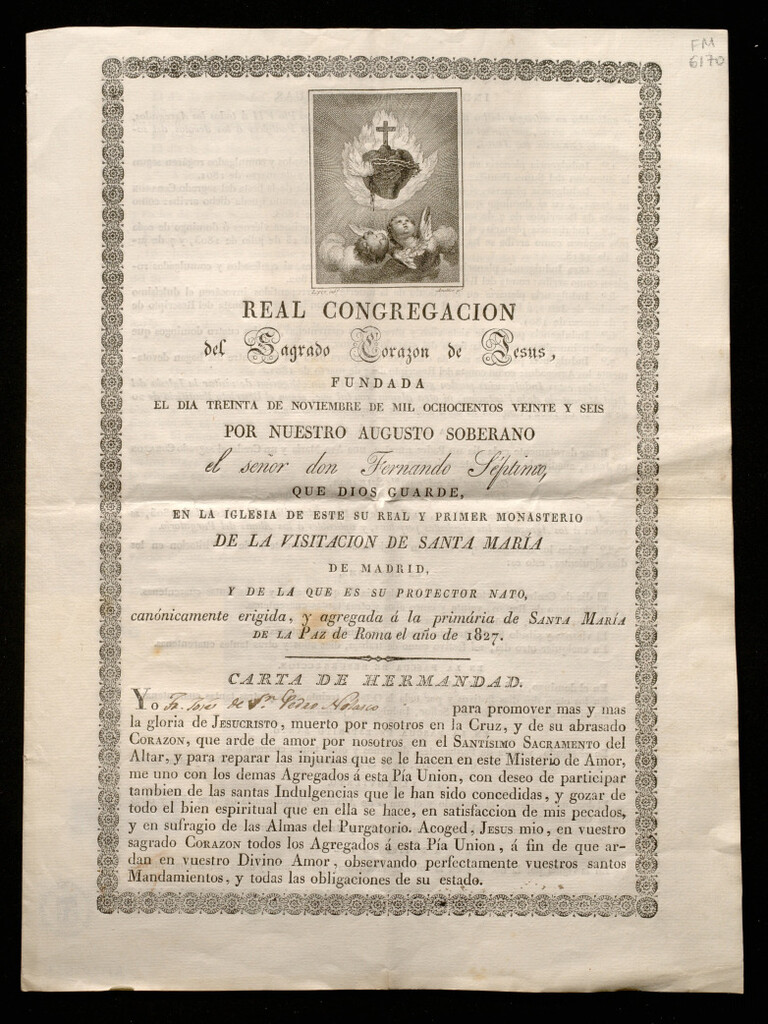 FM
6170
REAL CONGREGACION
del Sagrado Corazon de Jesus,
FUNDADA
EL DIA TREINTA DE NOVIEMBRE DE MIL OCHOCIENTOS VEINTE Y SEIS
POR NUESTRO AUGUSTO SOBERANO
el señor don Fernando Séptimo,
QUE DIOS GUARDE,
EN LA IGLESIA DE ESTE SU REAL Y PRIMER MONASTERIO
DE LA VISITACION DE SANTA MARÍA
DE MADRID,
Y DE LA QUE ES SU PROTECTOR NATO,
canónicamente erigida, y agregada á la primária de SANTA MARÍA
DE LA PAZ de Roma el año de 1827.
CARTA DE HERMANDAD.
Yo Fr. José de Sn. Pedro Nolasco para promover mas y mas
la gloria de JESUCRISTO, muerto por nosotros en la Cruz, y de su abrasado
CORAZON, que arde de amor por nosotros en el SANTÍSIMO SACRAMENTO del
Altar, y para reparar las injurias que se le hacen en este Misterio de Amor,
me uno con los demas Agregados á esta Pía Union, con deseo de participar
tambien de las santas Indulgencias que le han sido concedidas, y gozar de
todo el bien espiritual que en ella se hace, en satisfaccion de mis pecados,
y en sufragio de las Almas del Purgatorio. Acoged, JESUS mio, en vuestro
sagrado CORAZON todos los Agregados á esta Pía Union, á fin de que ar-
dan en vuestro Divino Amor, observando perfectamente vuestros santos
Mandamientos, y todas las obligaciones de su estado.